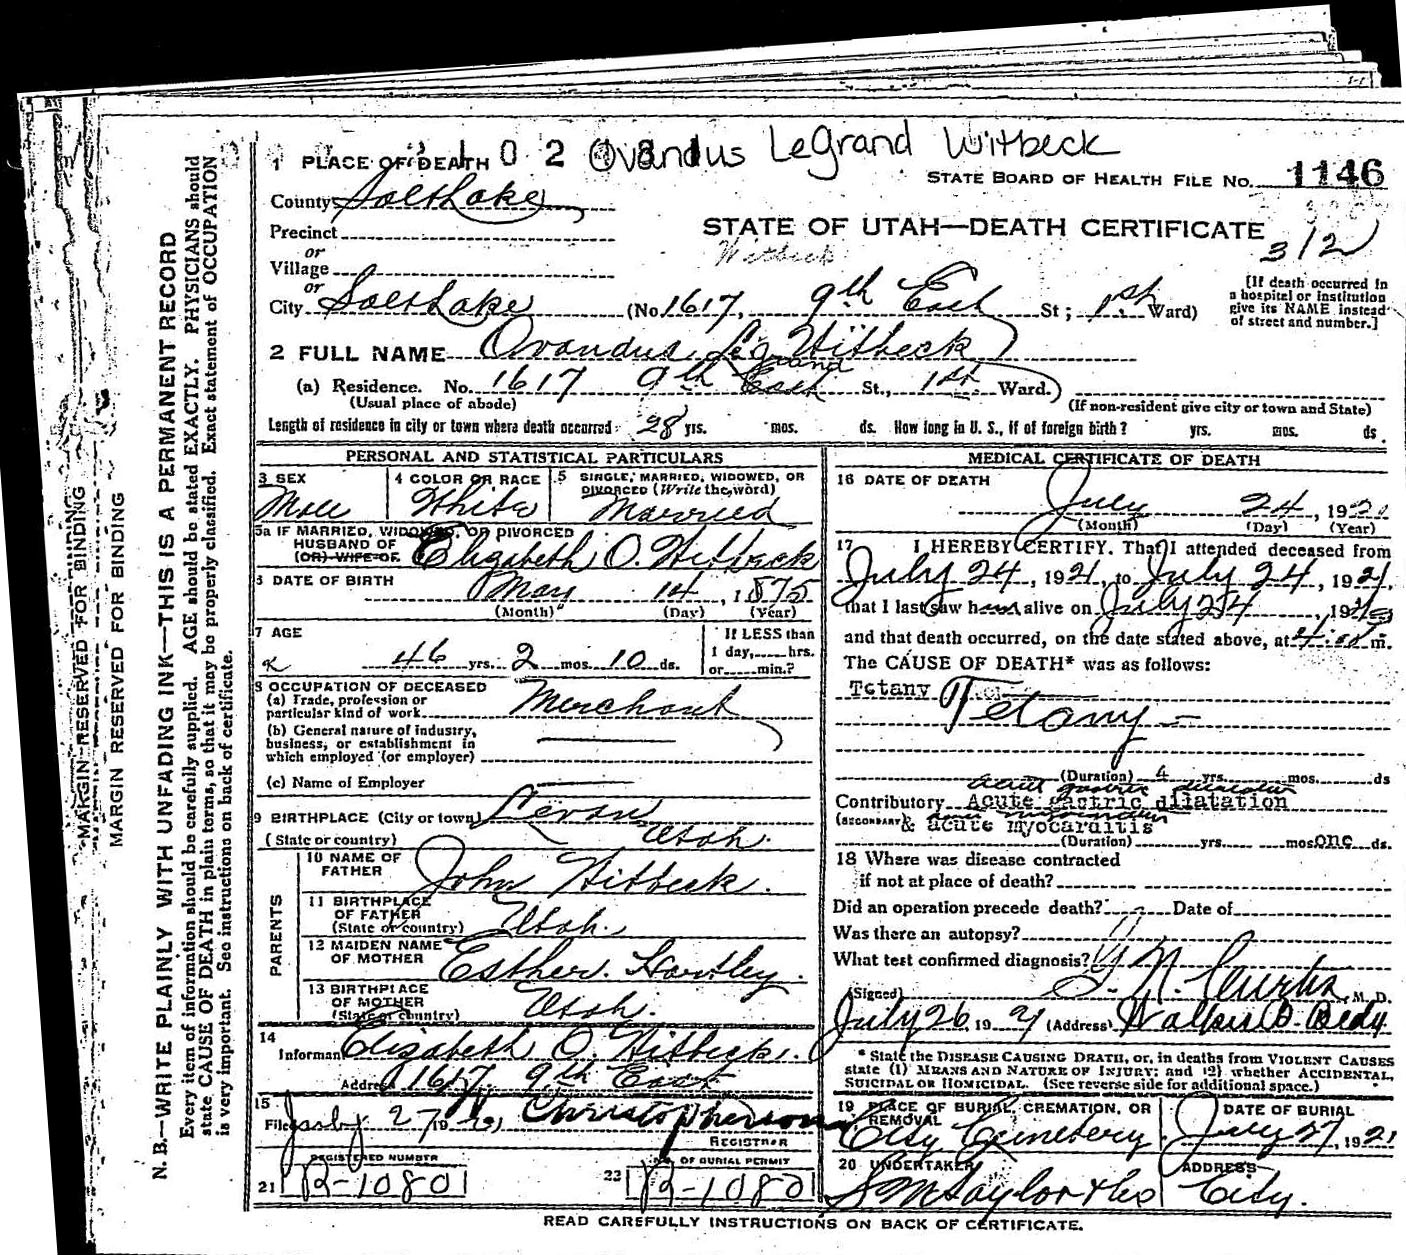 1 PLACE OF DEATH 1 0 2 Ovandus LeGrand Witbeck
STATE BOARD OF HEALTH FILE NO. 1146
County Salt Lake
Precinct
STATE OF UTAH—DEATH CERTIFICATE
312
or
Witbeck
Village
or
City Salt Lake (No 1617, 9th East St; 1st Ward)
[If death occurred in
a hospital or institution
give its NAME instead
of street and number.]
2 FULL NAME Ovandus LeGrand Witbeck
(a) Residence. No. 1617 9th East St., 1st Ward.
(Usual place of abode) (If non-resident give city or town and State)
Length of residence in city or town where death occurred 28 yrs. mos. ds. How long in U. S., if of foreign birth? yrs. mos. ds.
PERSONAL AND STATISTICAL PARTICULARS
3 SEX Male
4 COLOR OR RACE White
5 SINGLE, MARRIED, WIDOWED, OR
DIVORCED (Write the word)
Married
5a IF MARRIED, WIDOWED, OR DIVORCED
HUSBAND OF
(OR) WIFE OF Elizabeth O. Witbeck
6 DATE OF BIRTH May 14, 1875
(Month) (Day) (Year)
7 AGE
46 yrs. 2 mos. 10 ds.
If LESS than
1 day, hrs.
or min.?
8 OCCUPATION OF DECEASED
(a) Trade, profession or
particular kind of work Merchant
(b) General nature of industry,
business, or establishment in
which employed (or employer)
(c) Name of Employer
9 BIRTHPLACE (City or town) Levan
(State or country) Utah.
PARENTS
10 NAME OF
FATHER John Witbeck.
11 BIRTHPLACE
OF FATHER
(State or country) Utah.
12 MAIDEN NAME
OF MOTHER Esther Hartley.
13 BIRTHPLACE
OF MOTHER
(State or country) Utah.
14
Informant Elizabeth O. Witbeck.
Address 1617 9th East
15
Filed July 27 1921, Christopherson
REGISTRAR
REGISTERED NUMBER
21 B-1080
NO. OF BURIAL PERMIT
22 B-1080
MEDICAL CERTIFICATE OF DEATH
16 DATE OF DEATH
July 24, 1921
(Month) (Day) (Year)
17 I HEREBY CERTIFY. That I attended deceased from
July 24, 1921, to July 24, 1921,
that I last saw h alive on July 24, 19
and that death occurred, on the date stated above, at m.
The CAUSE OF DEATH* was as follows:
Tetany
Tetany
(Duration) 4 yrs. mos. ds
acute gastric dilatation
Contributory Acute gastric dilatation
(SECONDARY) & acute myocarditis
(Duration) yrs. mos one ds.
18 Where was disease contracted
if not at place of death?
Did an operation precede death? Date of
Was there an autopsy?
What test confirmed diagnosis?
(Signed) N. Curtis, M. D.
July 26, 1921 (Address) Walker B. Bldg
* State the DISEASE CAUSING DEATH, or, in deaths from VIOLENT CAUSES
state (1) MEANS AND NATURE OF INJURY; and (2) whether ACCIDENTAL,
SUICIDAL OR HOMICIDAL. (See reverse side for additional space.)
19 PLACE OF BURIAL, CREMATION, OR
REMOVAL
City Cemetery
DATE OF BURIAL
July 27, 1921
20 UNDERTAKER
S M Taylor & Co
ADDRESS
City.
READ CAREFULLY INSTRUCTIONS ON BACK OF CERTIFICATE.
MARGIN RESERVED FOR BINDING
MARGIN RESERVED FOR BINDING
N. B.—WRITE PLAINLY WITH UNFADING INK—THIS IS A PERMANENT RECORD
Every item of information should be carefully supplied. AGE should be stated EXACTLY. PHYSICIANS should
state CAUSE OF DEATH in plain terms, so that it may be properly classified. Exact statement of OCCUPATION
is very important. See instructions on back of certificate.